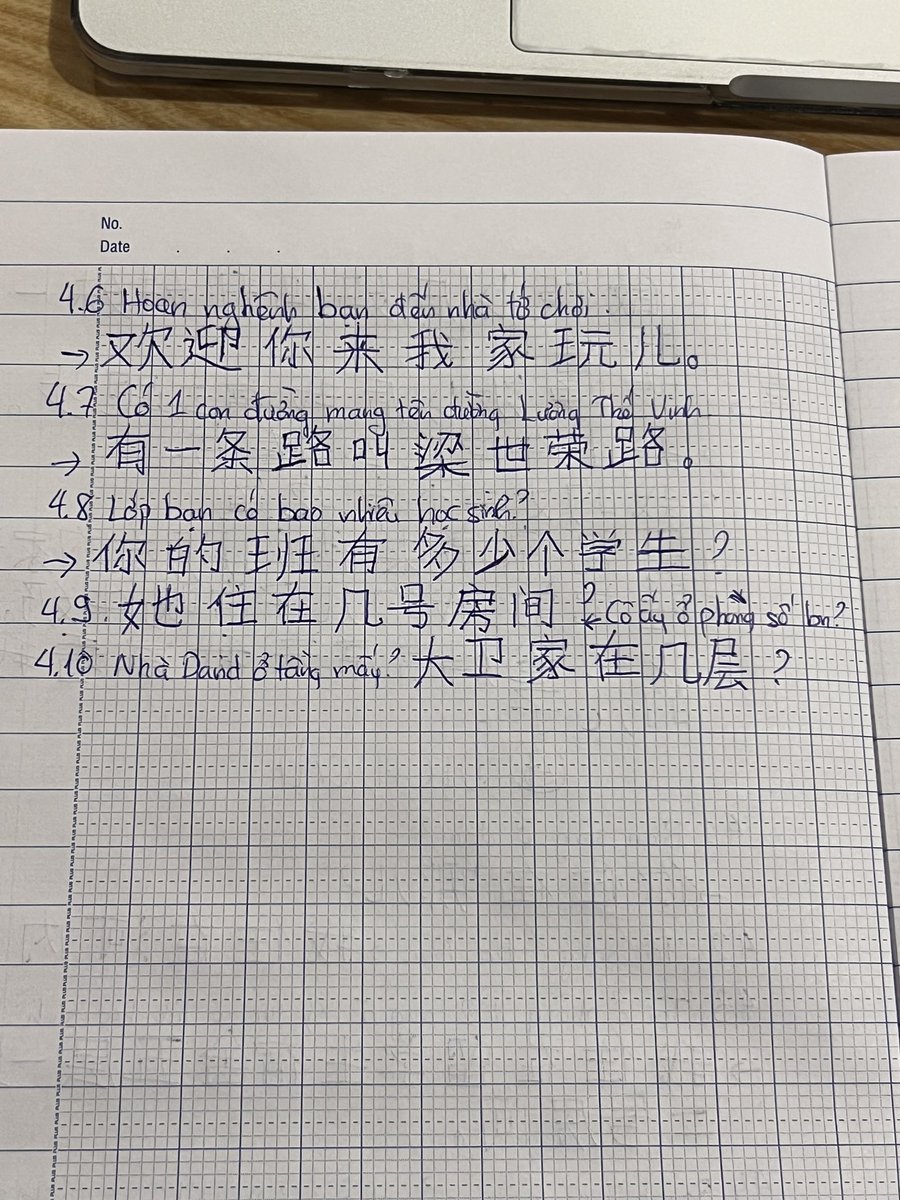 No.
Date
4.6 Hoan nghênh bạn đến nhà tớ chơi.
→ 欢迎你来我家玩儿。
4.7 Có 1 con đường mang tên đường Lương Thế Vinh
→ 有一条路叫梁世荣路。
4.8 Lớp bạn có bao nhiêu học sinh?
→ 你的班有多少个学生?
4.9. 她住在几号房间? ← Cô ấy ở phòng số
4.10 Nhà David ở tầng mấy? 大卫家在几层?